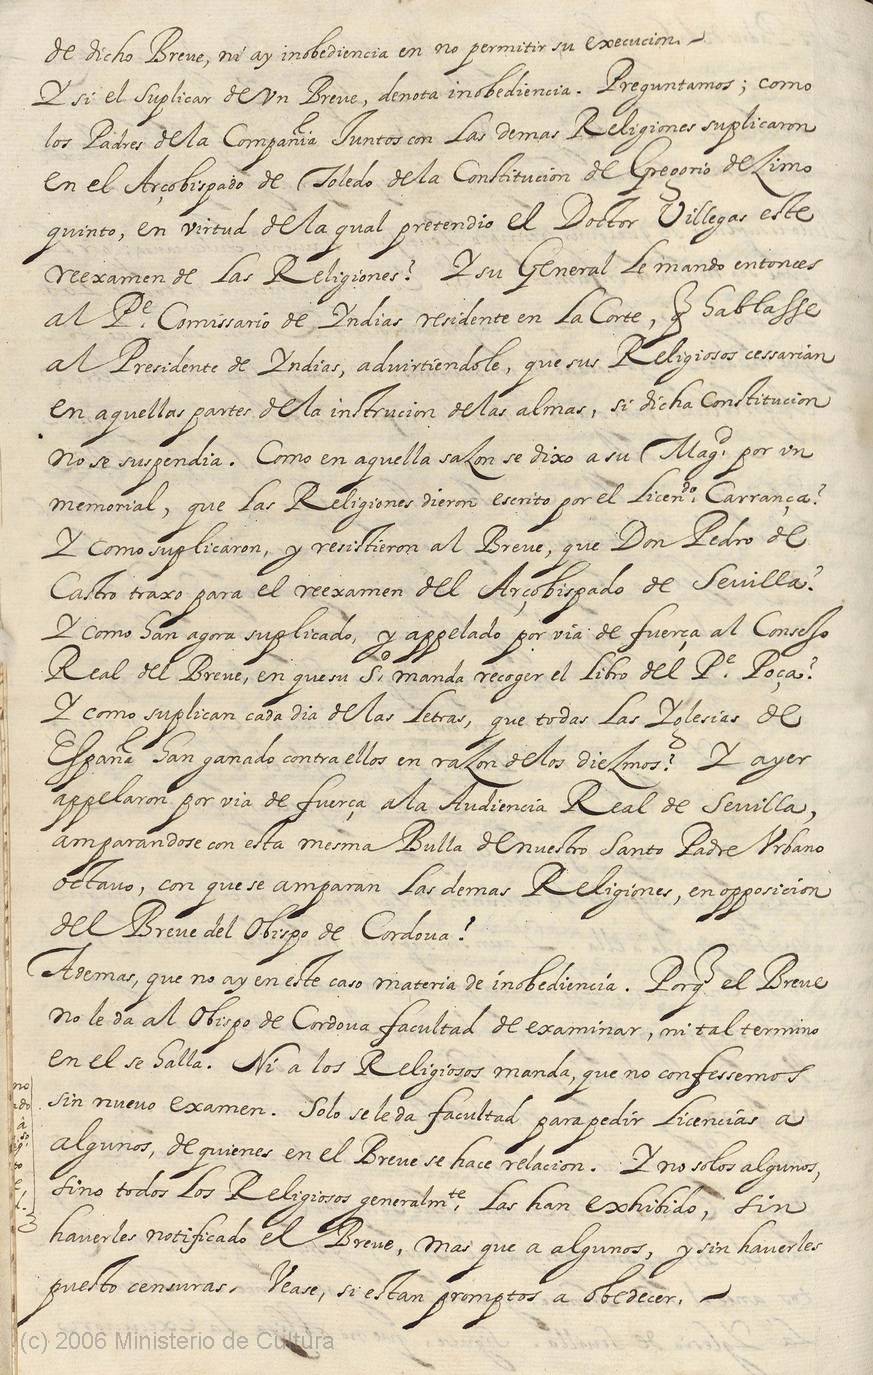 de dicho Breve, ni ay inobediencia en no permitir su execucion.
Y si el suplicar de vn Breve, denota inobediencia. Preguntamos; como
los Padres de la Compañia Juntos con Las demas Religiones suplicaron
en el Arçobispado de Toledo de la Constitucion de Gregorio deZimo
quinto, en virtud de la qual pretendio el Doctor Villegas este
reexamen de Las Religiones? Y su General Le mando entonces
al Pe. Comissario de Yndias residente en La Corte, q hablasse
al Presidente de Yndias, advirtiendole, que sus Religiosos cessarian
en aquellas partes de la instrucion de las almas, si dicha Constitucion
no se suspendia. Como en aquella saZon se dixo a su Magd. por vn
memorial, que Las Religiones dieron escrito por el Licendo. Carrança?
Y como suplicaron, y resistieron al Breve, que Don Pedro de
Castro traxo para el reexamen del Arçobispado de Sevilla?
Y como han agora suplicado, y appelado por via de fuerça al Consejo
Real del Breve, en que su Sd. manda recoger el Libro del Pe. Poça?
Y como suplican cada dia de las Letras, que todas Las Yglesias de
España han ganado contra ellos en raZon de los dieZmos? Y ayer
appelaron por via de fuerça a la Audiencia Real de Sevilla,
amparandose con esta mesma Bulla de nuestro Santo Padre Vrbano
octauo, con que se amparan Las demas Religiones, en opposicion
del Breve del Obispo de Cordova?
Ademas, que no ay en este caso materia de inobediencia. Porq el Breve
no le da al Obispo de Cordova facultad de examinar, ni tal termino
en el se halla. Ni a los Religiosos manda, que no confessemos
sin nuevo examen. Solo se le da facultad para pedir Licencias a
algunos, de quienes en el Breve se hace relacion. Y no solos algunos,
sino todos Los Religiosos generalmte. Las han exhibido, sin
haverles notificado el Breve, mas que a algunos, y sin haverles
puesto censuras. Vease, si estan promptos a obedecer.
(c) 2006 Ministerio de Cultura